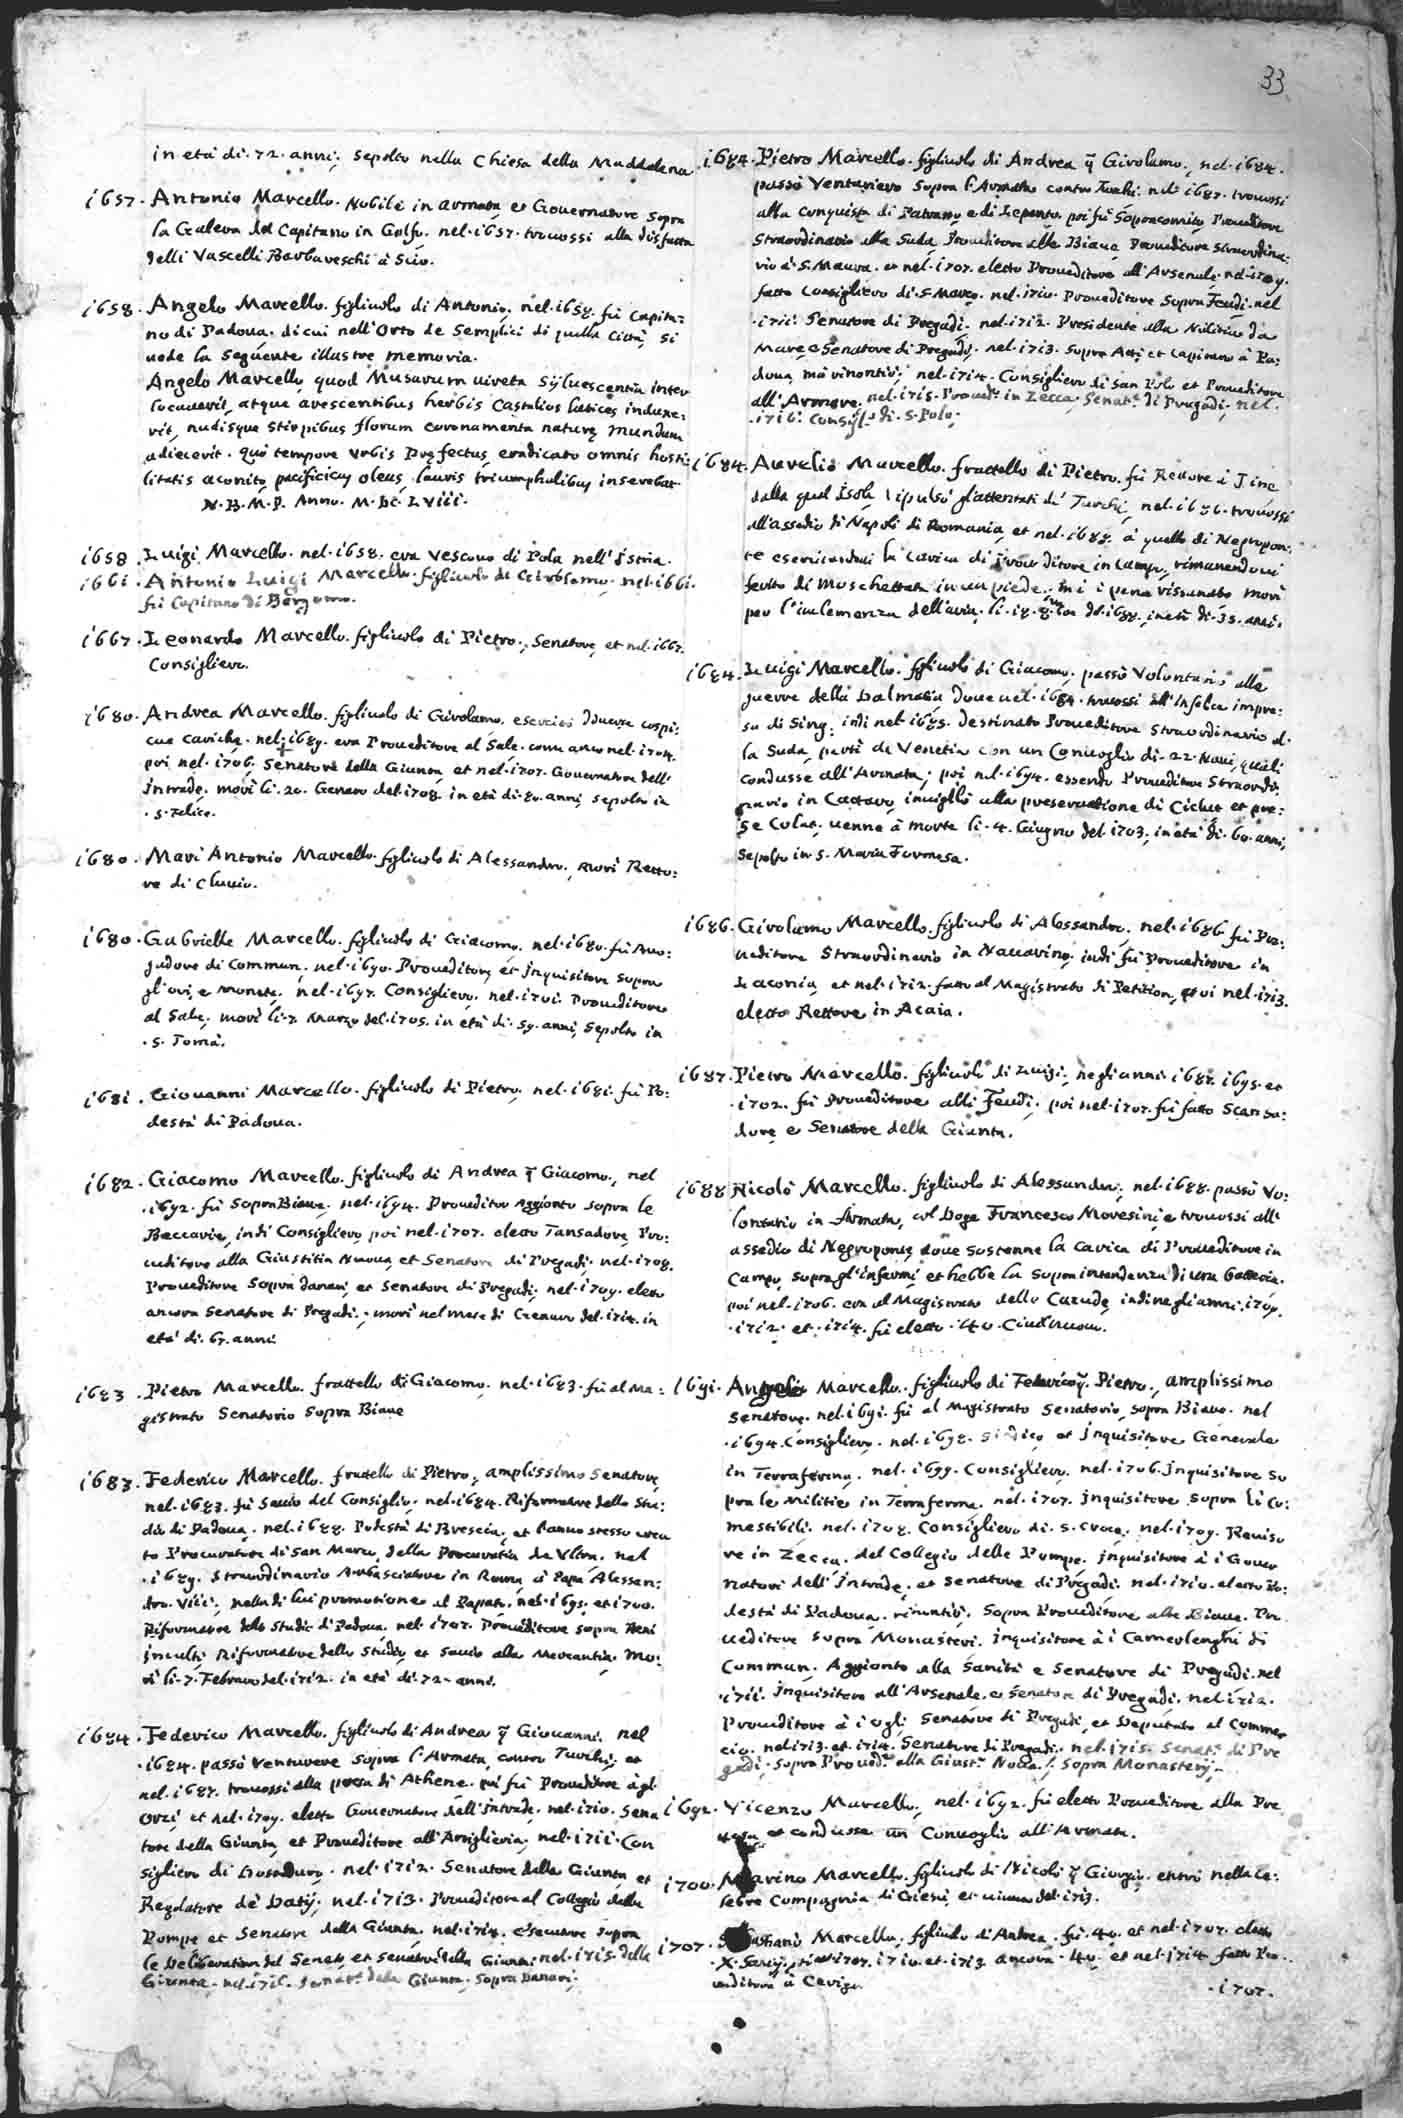 33
in età di 72. anni; sepolto nella Chiesa della Maddalena
1657. Antonio Marcello. Nobile in armata et Governatore sopra
la Galera del Capitano in Golfo. nel. 1657. trovossi alla disfatta
delli Vascelli Barbareschi à Scio.
1658. Angelo Marcello. figliuolo di Antonio, nel. 1658. fù Capita:
no di Padoua. di cui nell'Orto de Semplici di quella Città, si
uede la seguente illustre memoria.
Angelo Marcello, quod Musarum uireta syluescentia inter
locauerit, atque arescentibus herbis Castalios latices induxe:
rit, nudisque stirpibus florum coronamenta naturę mundum
adiecerit. quo tempore Vrbis Prefectus eradicato omnis hosti:
litatis aconito, pacificias oleas lauris triumphalibus inserebat.
N. B. M. P. Anno. M. DC. LVIII.
1658. Luigi Marcello. nel. 1658. era Vescouo di Pola nell'Istria.
1661. Antonio Luigi Marcello. figliuolo di Girolamo. nel. 1661.
fù Capitano di Bergomo.
1667. Leonardo Marcello. figliuolo di Pietro., Senatore, et nel. 1667.
Consigliero.
1680. Andrea Marcello. figliuolo di Girolamo, esercitò diuerse cospi:
cue cariche. nel. 1689. era Proueditore al Sale. come anco nel. 1704.
poi nel. 1706. Senatore della Giunta, et nel. 1707. Gouernatore dell'
Intrade. morì li. 20. Genaro del. 1708. in età di. 80. anni, sepolto in
. S. Felice.
1680. Marc'Antonio Marcello. figliuolo di Alessandro., morì Retto:
re di Cluuio.
1680. Gabrielle Marcello. figliuolo di Giacomo. nel. 1680. fù Auo:
gadore di Commun. nel. 1690. Proueditore, et Inquisitore sopra
gl'ori, e monete. nel. 1697. Consigliero. nel. 1701. Proueditore
al Sale, morì li. 7. Marzo del. 1705. in età di. 59. anni, sepolto in
. S. Tomà.
1681. Giouanni Marcello. figliuolo di Pietro, nel. 1681. fù Po:
destà di Padoua.
1682. Giacomo Marcello. figliuolo di Andrea q Giacomo., nel
. 1692. fù sopra Biaue. nel. 1694. Proueditor Aggionto sopra le
Beccarie, indi Consigliero, poi nel. 1707. eletto Tansadore, Pro:
ueditore alla Giustitia Nuoua, et Senatore di Pregadi. nel. 1708.
Proueditore sopra danari, et Senatore di Pregadi. nel. 1709. eletto
ancora Senatore di Pregadi., morì nel mese di Genaro del. 1714. in
età di. 67. anni
1683. Pietro Marcello. frattello di Giacomo. nel. 1683. fù al Ma:
gistrato Senatorio Sopra Biaue
1683. Federico Marcello. frattello di Pietro, amplissimo Senatore,
nel. 1683. fù Sauio del Consiglio. nel. 1684. Riformatore dello Stu:
dio di Padoua. nel. 1688. Podestà di Brescia, et l'anno stesso crea
to Procuratore di San Marco della Procuratia de Vltra. nel
. 1689. straordinario Ambasciatore in Roma à Papa Alessan:
dro. VIII., nella di lui promotione al Papato. nel. 1695. et 1700.
Riformatore dello Studio di Padoua. nel. 1707. Proueditore sopra Beni
inculti, Riformatore dello Studio, et Sauio alla Mercantia. Mo:
rì li. 7. Febraro del. 1712. in età di. 72. anni.
1684. Federico Marcello. figliuolo di Andrea q Giouanni. nel
. 1684. passò venturiere sopra l'Armata contro Turchi, et
nel. 1687. trouossi alla presa di Athene. poi fù Proueditore à gl'
Orzi, et nel. 1709. eletto Gouernatore dell'Intrade. nel. 1710. Sena
tore della Giunta, et Proueditore all'Artiglieria. nel. 1711. Con
sigliero di Dosoduro. nel. 1712. Senatore della Giunta, et
Regolatore de Datij. nel. 1713. Proueditore al Collegio delle
Pompe et Senatore della Giunta. nel. 1714. Esecutore sopra
le Deliberation del Senato, et senatore della Giunta. nel. 1715. della
Giunta. nel. 1716. Senat.r della Giunta. Sopra Danari.
1684. Pietro Marcello. figliuolo di Andrea q Girolamo., nel. 1684.
passò Venturiero sopra l'Armata contro Turchi. nel 1687. trouossi
alla conquista di Patrasso, e di Lepanto. poi fù Sopracomito, Proueditore
straordinario alla Suda, Proueditore alle Biaue, Proueditore straordina:
rio à S. Maura. et nel. 1707. eletto Proueditore all'Arsenale. nel. 1709.
fatto Consigliero di S. Marco. nel. 1710. Proueditore sopra Feudi. nel
. 1711. Senatore di Pregadi. nel. 1712. Presidente alla Militia da
Mare, e Senatore di Pregadi. nel. 1713. sopra Atti, et Capitano à Pa:
doua, mà rinontiò; nel. 1714. Consigliero di San Polo et Proueditore
all'Armare. nel. 1715. Proued.r in Zecca, Senat.r di Pregadi. nel.
. 1716. Consigl.o di. S. Polo.
1684. Aurelio Marcello. frattello di Pietro. fù Rettore à Tine
dalla qual Isola ripulsò gl'attentati de' Turchi, nel. 1686. trouossi
all'assedio di Napoli di Romania, et nel. 1688. à quello di Negropon:
te esercitandoui la carica di Proueditore in Campo, rimanendoui
ferito di moschettata in un piede. mà à pena rissanato morì
per l'inclemenza dell'aria. li. 18. 8.bre del. 1688. in età di. 35. anni.
1684. Luigi Marcello. figliuolo di Giacomo, passò Volontario alle
guerre della Dalmatia doue nel. 1684. trouossi all'Infelice impre:
sa di Sing, indi nel. 1685. destinato Proueditore Straordinario al:
la Suda, partì da Venetia con un Conuoglio di. 22. Naui, quali
condusse all'Armata; poi nel. 1694. essendo Proueditore Straordi:
nario in Cattaro, inuigilò alla preseruatione di Ciclut et pre:
se Colas. uenne à morte li. 4. Giugno del. 1703. in età di. 60. anni,
sepolto in S. Maria Formosa.
1686. Girolamo Marcello. figliuolo di Alessandro. nel. 1686 fù Pro:
ueditore Straordinario in Nauarino, indi fù Proueditore in
Laconia, et nel. 1712. fatto al Magistrato di Petition, et poi nel. 1713.
eletto Rettore in Acaia.
1687. Pietro Marcello. figliuolo di Luigi, negli anni. 1687. 1695. et
. 1702. fù Proueditore alli Feudi. poi nel. 1707. fù fatto Scansa:
dore, e Senatore della Giunta.
1688 Nicolò Marcello. figliuolo di Alessandro., nel. 1688. passò Vo:
lontario in Armata, col Doge Francesco Moresini, e trouossi all'
assedio di Negroponte, doue sostenne la carica di Proueditore in
Campo, sopra gl'infermi, et hebbe la sopraintendenza di una batteria.
poi nel. 1706. era al Magistrato delle Cazude, indi negl'anni. 1709.
. 1712. et. 1714. fù eletto. 40. Ciuil nuouo.
1691. Angelo Marcello. figliuolo di Federico q. Pietro., amplissimo
senatore. nel. 1691. fù al Magistrato Senatorio, sopra Biaue. nel
. 1694. Consigliero. nel. 1698. Sindico et Inquisitore Generale
in Terraferma. nel. 1699. Consigliero. nel. 1706. Inquisitore so
pra le Militie in Terraferma. nel. 1707. Inquisitore sopra li Co:
mestibili. nel. 1708. Consigliero di. S. Croce. nel. 1709. Reuiso
re in Zecca. del Collegio delle Pompe. Inquisitore à i Gouer
natori dell'Intrade, et Senatore di Pregadi. nel. 1710. eletto Po:
destà di Padoua, rinuntiò. sopra Proueditore alle Biaue. Pro
ueditore sopra Monasteri. Inquisitore à i Camerlenghi di
Commun. Aggionto alla Sanità e Senatore di Pregadi. nel
. 1711. Inquisitore all'Arsenale, e Senatore di Pregadi. nel 1712.
Proueditore à i ogli, Senatore di Pregadi, et Deputato al Commer
cio. nel 1713. et. 1714. Senatore di Pregadi. nel. 1715. Senat.r di Pre
gadi. Sopra Proued.r alla Giust.a Nuoua. Sopra Monasterij.
1692. Vicenzo Marcello, nel. 1692. fù eletto Proueditore alla Pre
uesa et condusse un Conuoglio all'Armata.
1700. Marino Marcello. figliuolo di Nicolò q Giorgio, entrò nella Ce:
lebre Compagnia di Giesù, et uiueua del. 1713.
1707. Sebastiano Marcello. figliuolo di Andrea. fù. 40. et nel. 1707. eletto
. X. Sauij, nel. 1710. et. 1713. ancora. 40. et nel. 1714. fatto Pro:
ueditore à Cerigo.
. 1707.